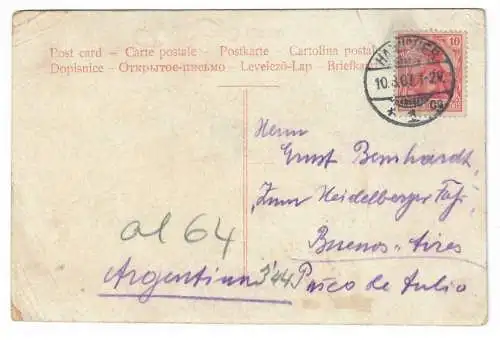 Post card – Carte postale – Postkarte – Cartolina postal
Dopisnice – Открытое-письмо – Levelező-Lap – Briefka
10
HANNOVER
10.8.07. 1-2N.
* 1
Herrn
Ernst Bernhardt,
"Zum Heidelberger Faß,
Buenos-Aires
al 64
Argentina 3'44 Paseo de Julio